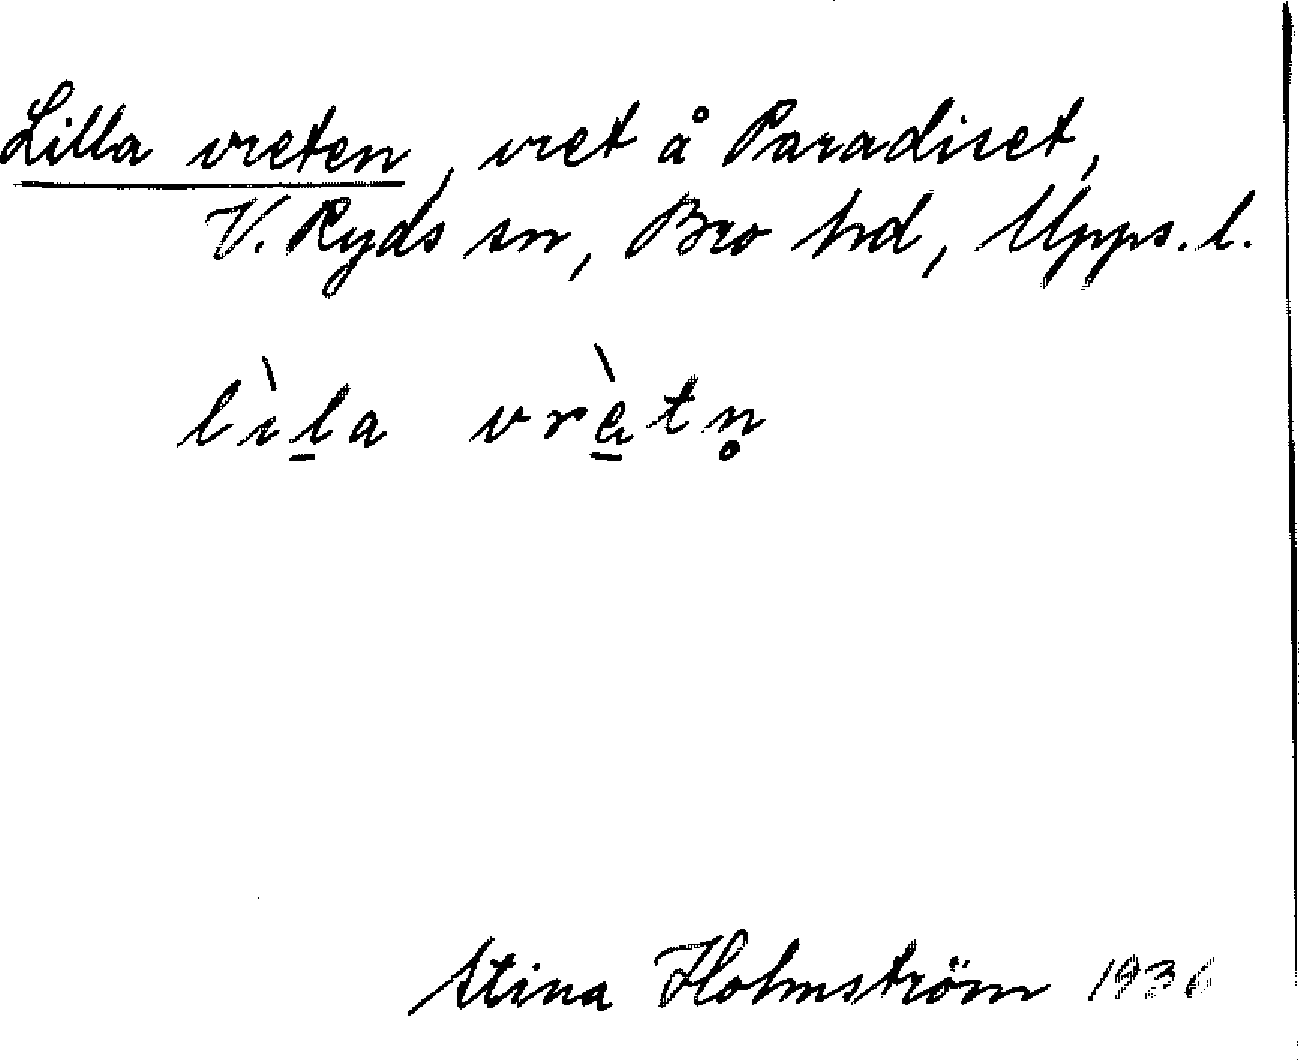 Lilla vreten, vret å Paradiset,
V. Ryds sn, Bro hd, Upps. l.
lìl̠a vrèt̠n̥
Stina Holmström 1936